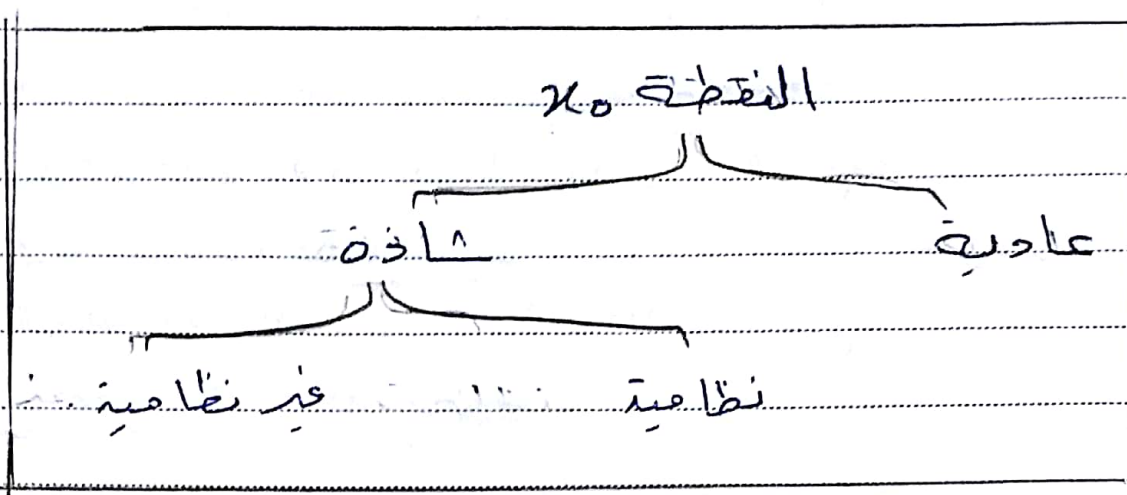 النقطة x₀
عادية شاذة
نظامية غير نظامية